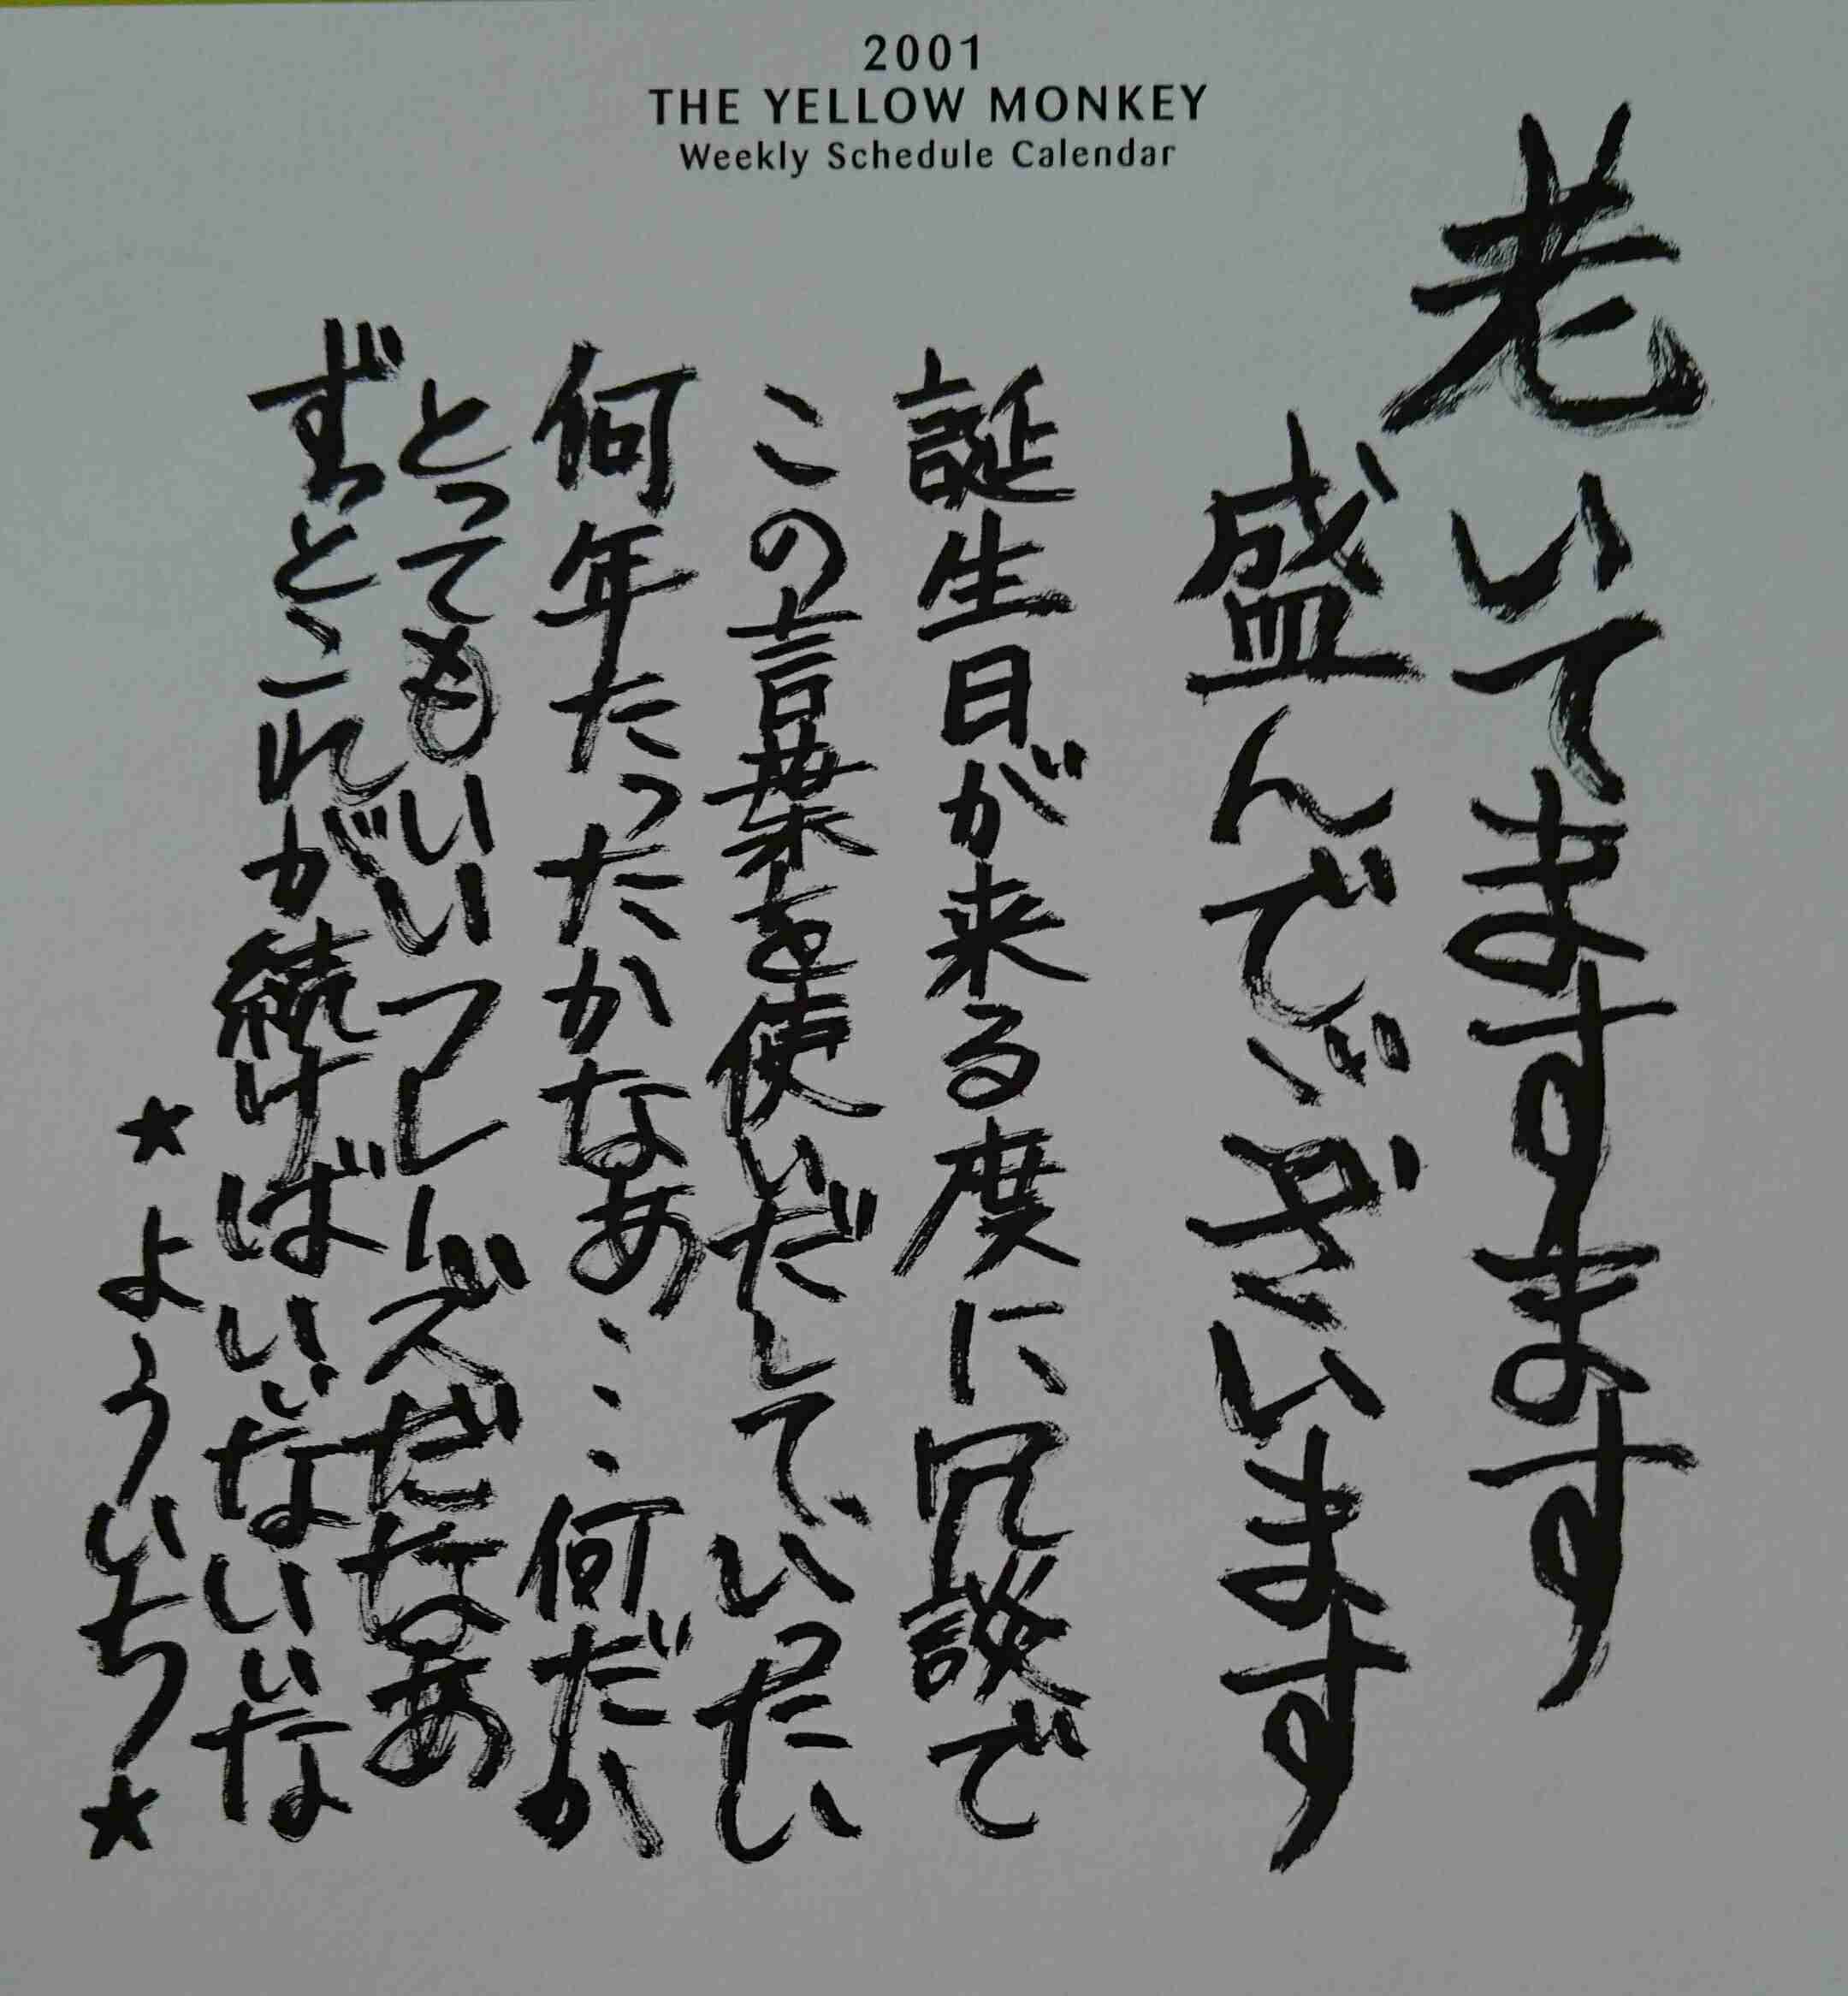 2001
THE YELLOW MONKEY
Weekly Schedule Calendar
老いてますます
盛んでございます
誕生日が来る度に冗談で
この言葉を使いだして、いったい
何年たったかなあ……何だか
とってもいいフレーズだなあ
ずっとこれが続けばいいなぁ
★よういち★